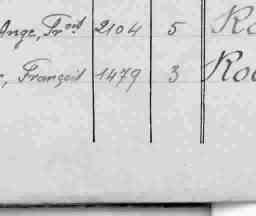 Ange, Fr.çois 2104 5 Ro
, François 1479 3 Ro